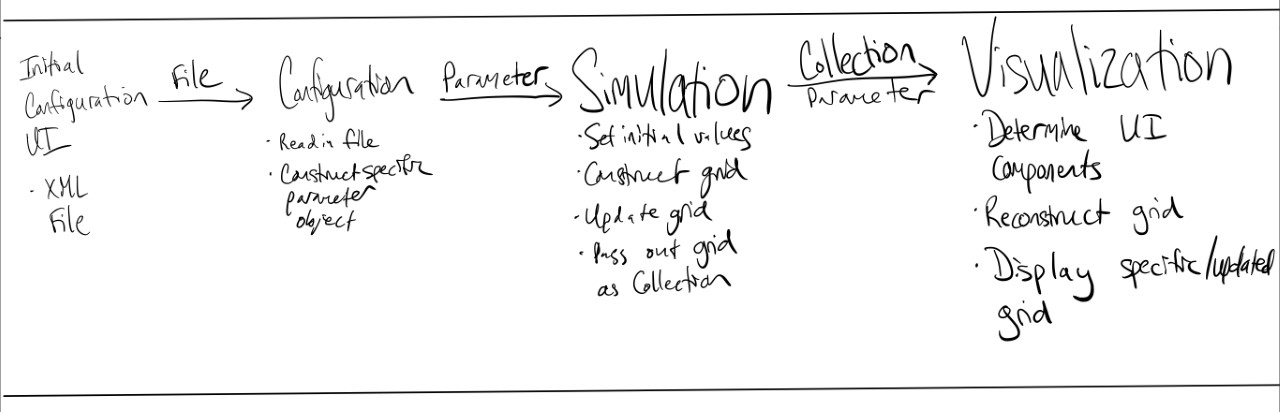 Initial
Configuration
UI
· XML
File
File
Configuration
· Read in file
· Construct specific
parameter
object
Parameter
Simulation
· Set initial values
· Construct grid
· Update grid
· Pass out grid
as Collection
Collection
Parameter
Visualization
· Determine UI
Components
· Reconstruct grid
· Display specific/updated
grid